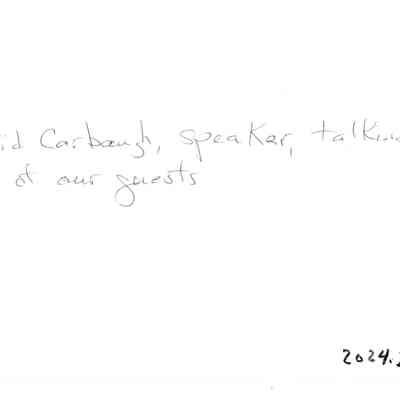 id Carbaugh, speaker, talkin
of our guests
2024.